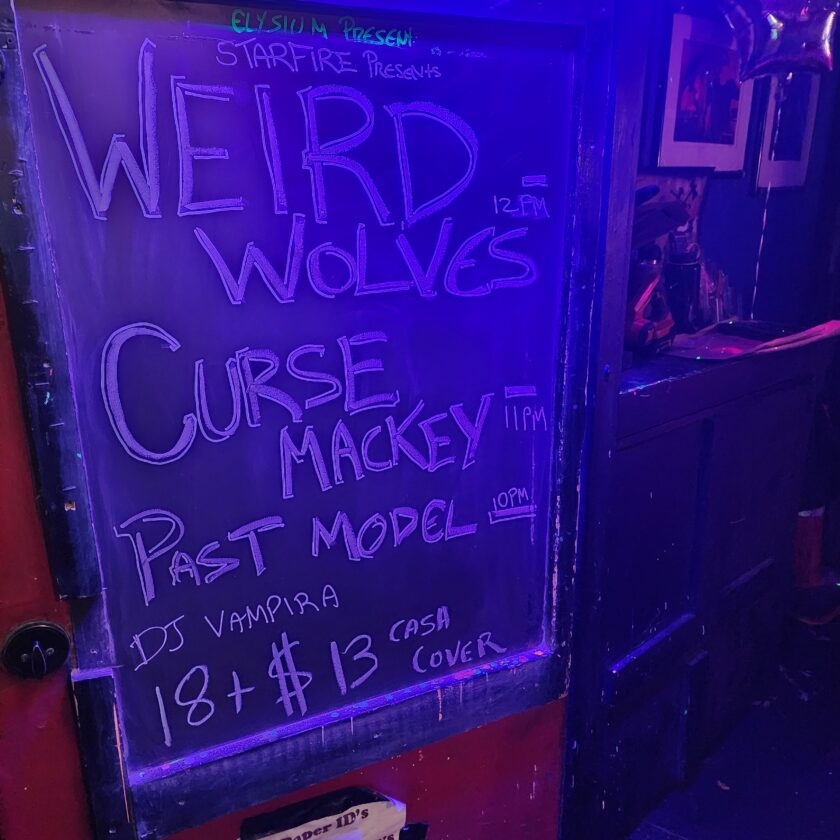 ELYSIUM PRESENT
STARFIRE PRESENTS
WEIRD
12PM
WOLVES
CURSE
MACKEY
11PM
PAST MODEL
10PM
DJ VAMPIRA
18+ $13 CASH
COVER
Paper ID's